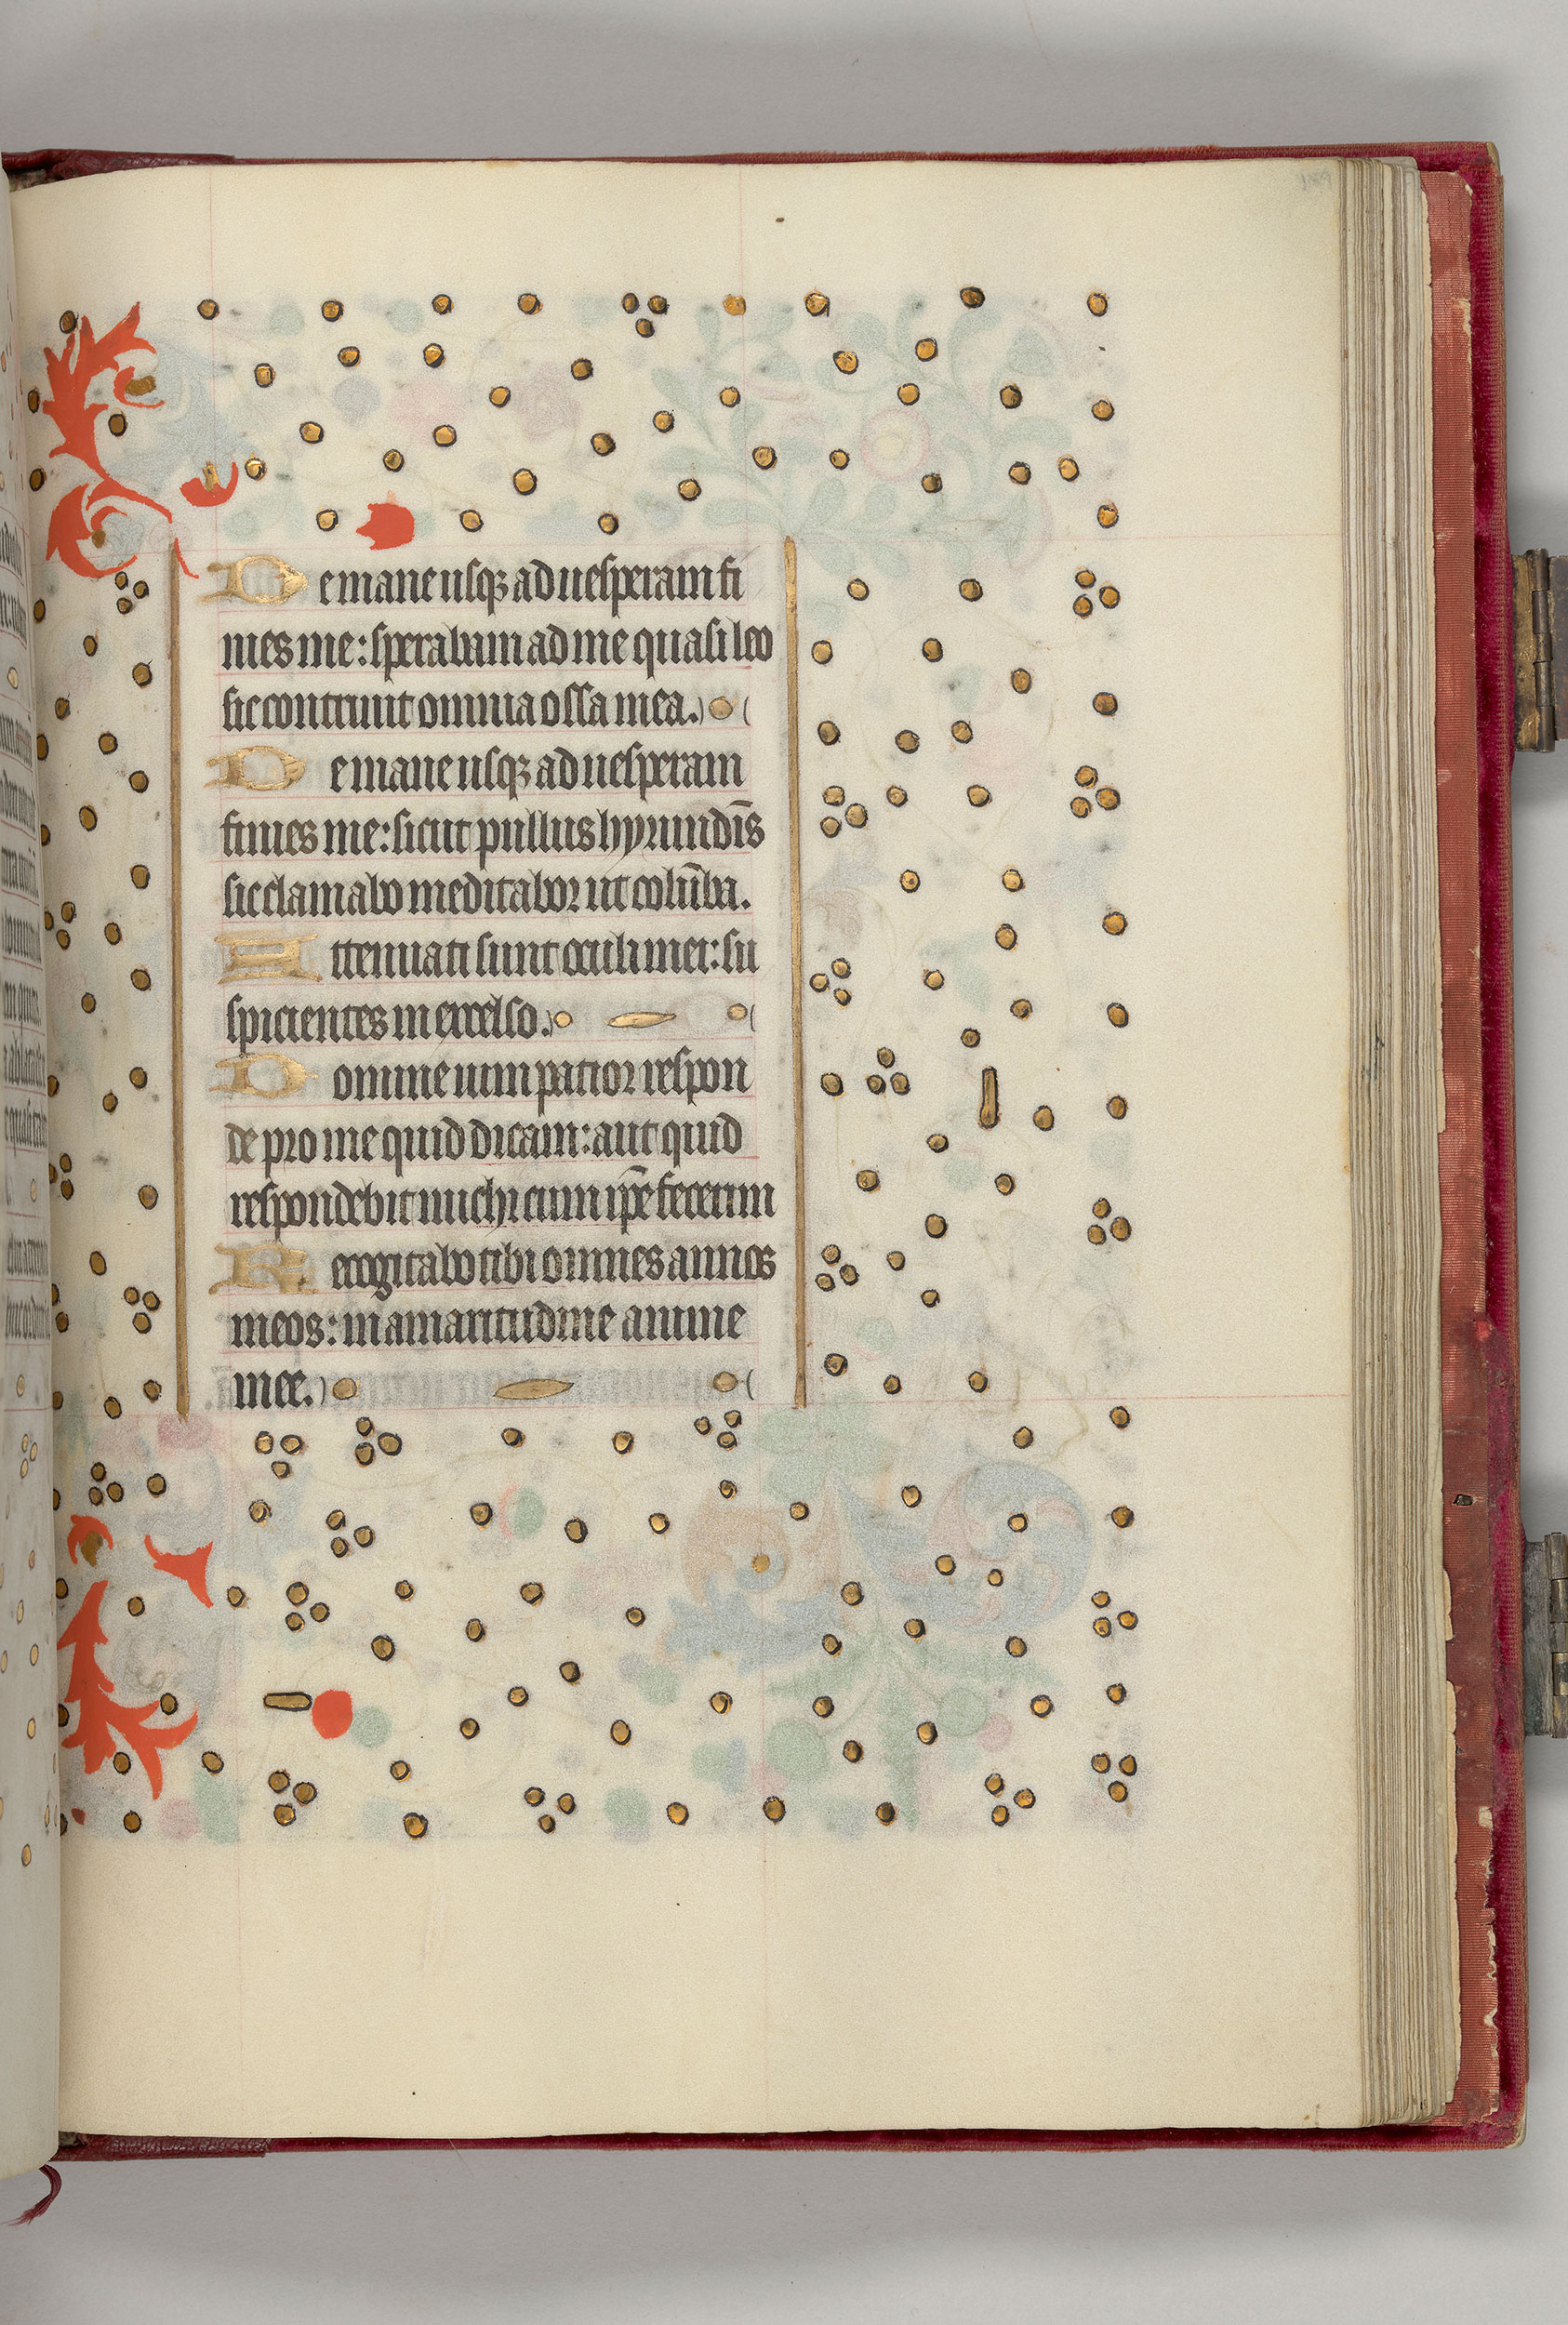 De mane usqꝫ ad uesperam fi
nies me: sperabam ad me quasi leo
sic contriuit omnia ossa mea.
De mane usqꝫ ad uesperam
finies me: sicut pullus hyrundīs
sic clamabo meditabor ut colūba.
Attenuati sunt oculi mei: su
spicientes in excelso.
Domine uim patior respon
de pro me quid dicam: aut quid
respondebit michi cum ip̄e fecerim
Recogitabo tibi omnes annos
meos: in amaritudine anime
mee.